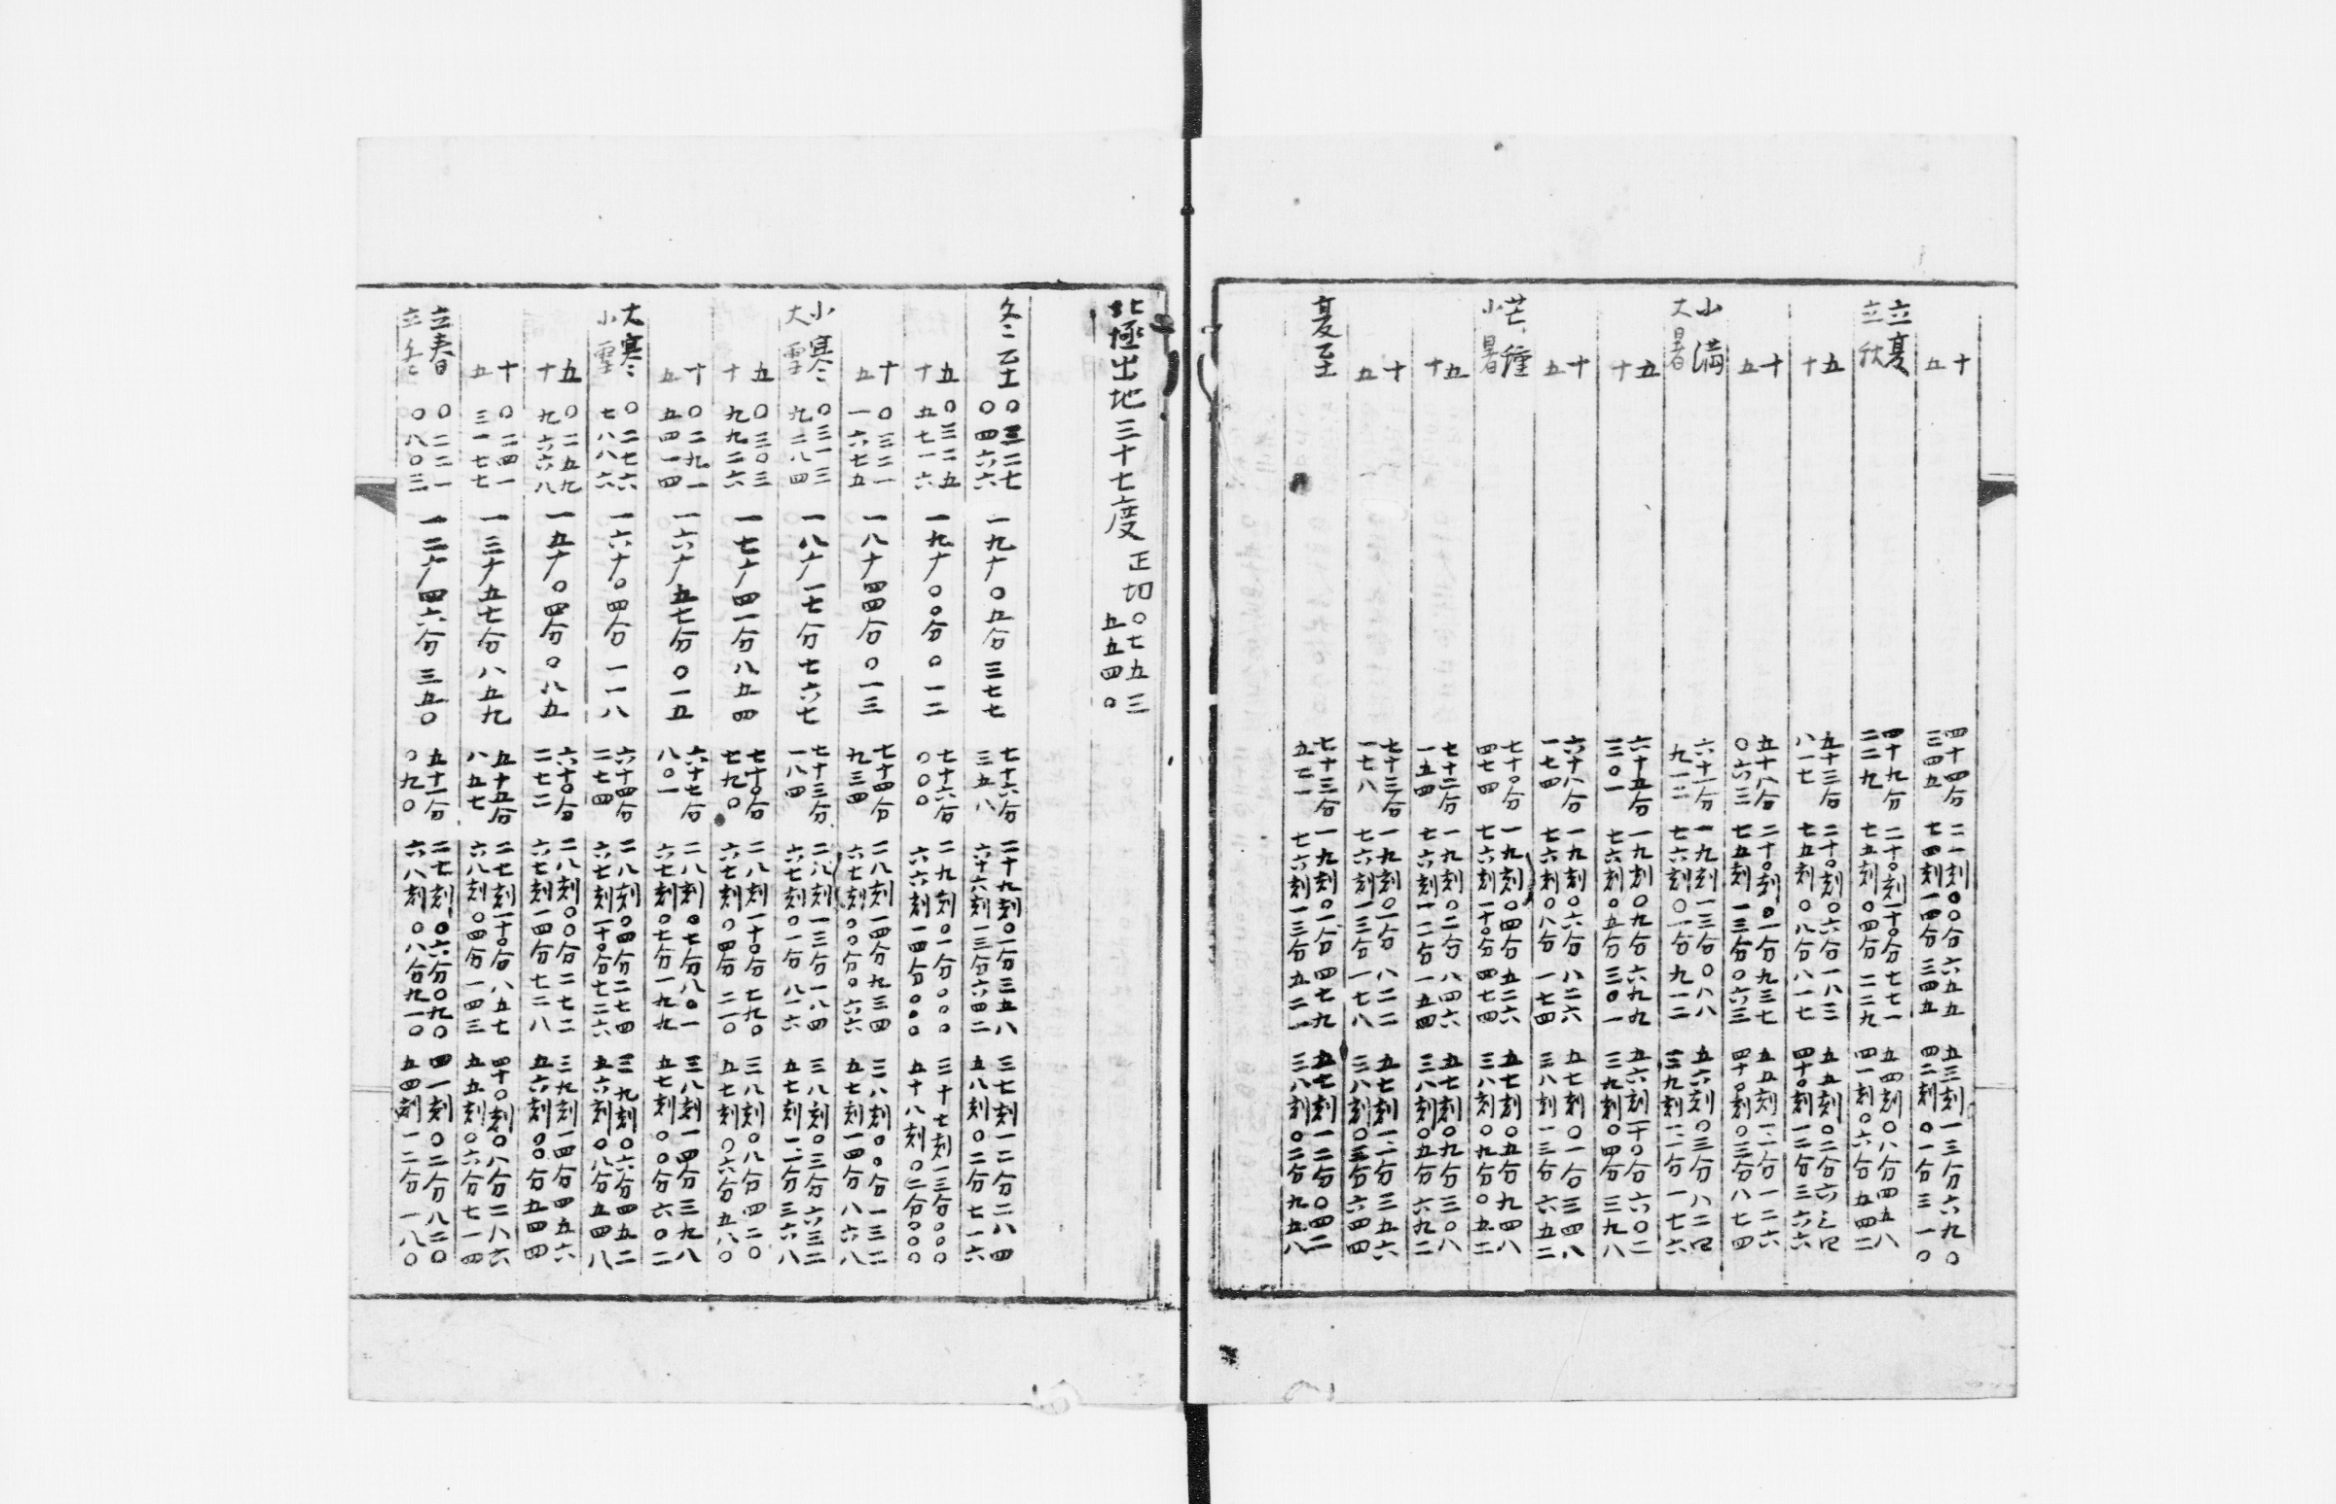 十 四十四分 二一刻〇〇分六五五 五三刻一三分六九〇
五 三四五 七四刻一四分三四五 四二刻〇一分三一〇
立夏 四十九分 二十〇刻一十〇分七七一 五四刻〇八分四五八
立秋 二二九 七五刻〇四分二二九 四一刻〇六分五四二
五 五十三分 二十〇刻〇六分一八三 五五刻〇二分六三四
十 八一七 七五刻〇八分八一七 四十〇刻一二分三六六
十 五十八分 二十〇刻〇一分九三七 五五刻一二分一二六
五 〇六三 七五刻一三分〇六三 四十〇刻〇二分八七四
小満 六十一分 一九刻一三分〇八八 五六刻〇三分八二四
大暑 九一二 七六刻〇一分九一二 三九刻一一分一七六
五 六十五分 一九刻〇九分六九九 五六刻一十〇分六〇二
十 三〇一 七六刻〇五分三〇一 三九刻〇四分三九八
十 六十八分 一九刻〇六分八二六 五七刻〇一分三四八
五 一七四 七六刻〇八分一七四 三八刻一三分六五二
芒種 七十〇分 一九刻〇四分五二六 五七刻〇五分九四八
小暑 四七四 七六刻一十〇分四七四 三八刻〇九分〇五二
五 七十二分 一九刻〇二分八四六 五七刻〇九分三〇八
十 一五四 七六刻一二分一五四 三八刻〇五分六九二
十 七十三分 一九刻〇一分八二二 五七刻一一分三五六
五 一七八 七六刻一三分一七八 三八刻〇三分六四四
夏至 七十三分 一九刻〇一分四七九 五七刻一二分〇四二
五二一 七六刻一三分五二一 三八刻〇二分九五八
北極出地三十七度 正切〇七五三
五五四〇
冬至 〇三二七 一九十〇五分三七七 七十六分 二十九刻〇一分三五八 三七刻一二分二八四
〇四六六 三五八 六十六刻一三分六四二 五八刻〇二分七一六
五 〇三二五 一九十〇〇分〇一二 七十六分 二九刻〇一分〇〇〇 三十七刻一三分〇〇〇
十 五七一六 〇〇〇 六六刻一四分〇〇〇 五十八刻〇二分〇〇〇
十 〇三二一 一八十四四分〇一三 七十四分 二八刻一四分九三四 三八刻〇〇分一三二
五 一六七五 九三四 六七刻〇〇分〇六六 五七刻一四分八六八
小寒 〇三一三 一八十一七分七六七 七十三分 二八刻一三分一八四 三八刻〇三分六三二
大雪 九二八四 一八四 六七刻〇一分八一六 五七刻一一分三六八
五 〇三〇三 一七十四一分八五四 七十〇分 二八刻一十〇分七九〇 三八刻〇八分四二〇
十 九九二六 七九〇 六七刻〇四分二一〇 五七刻〇六分五八〇
十 〇二九一 一六十五七分〇一五 六十七分 二八刻〇七分八〇一 三八刻一四分三九八
五 五四一四 八〇一 六七刻〇七分一九九 五七刻〇〇分六〇二
大寒 〇二七六 一六十〇四分一一八 六十四分 二八刻〇四分二七四 三九刻〇六分四五二
小雪 七八八六 二七四 六七刻一十〇分七二六 五六刻〇八分五四八
五 〇二五九 一五十〇四分〇八五 六十〇分 二八刻〇〇分二七二 三九刻一四分四五六
十 九六六八 二七二 六七刻一四分七二八 五六刻〇〇分五四四
十 〇二四一 一三十五七分八五九 五十五分 二七刻一十〇分八五七 四十〇刻〇八分二八六
五 三一七七 八五七 六八刻〇四分一四三 五五刻〇六分七一四
立春 〇二二一 一二十四六分三五〇 五十一分 二七刻〇六分〇九〇 四一刻〇二分八二〇
立冬 〇八〇三 〇九〇 六八刻〇八分九一〇 五四刻一二分一八〇